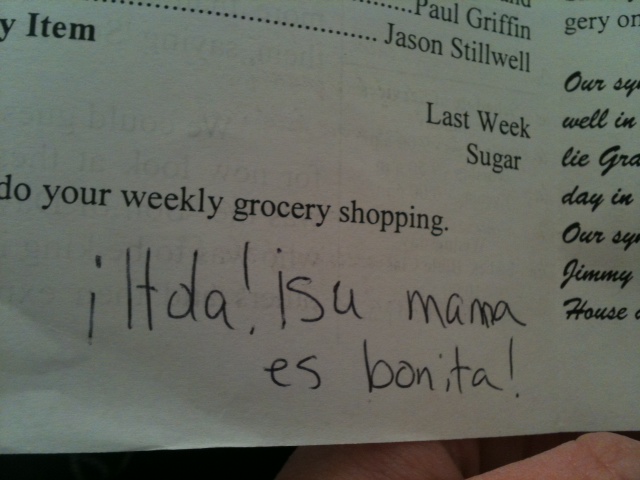 ......Paul Griffin
y Item ........ Jason Stillwell
Last Week
Sugar
do your weekly grocery shopping.
¡Hola! ¡Su mama
es bonita!
gery on
Our sy
well in
lie Gra
day in
Our sy
Jimmy
House